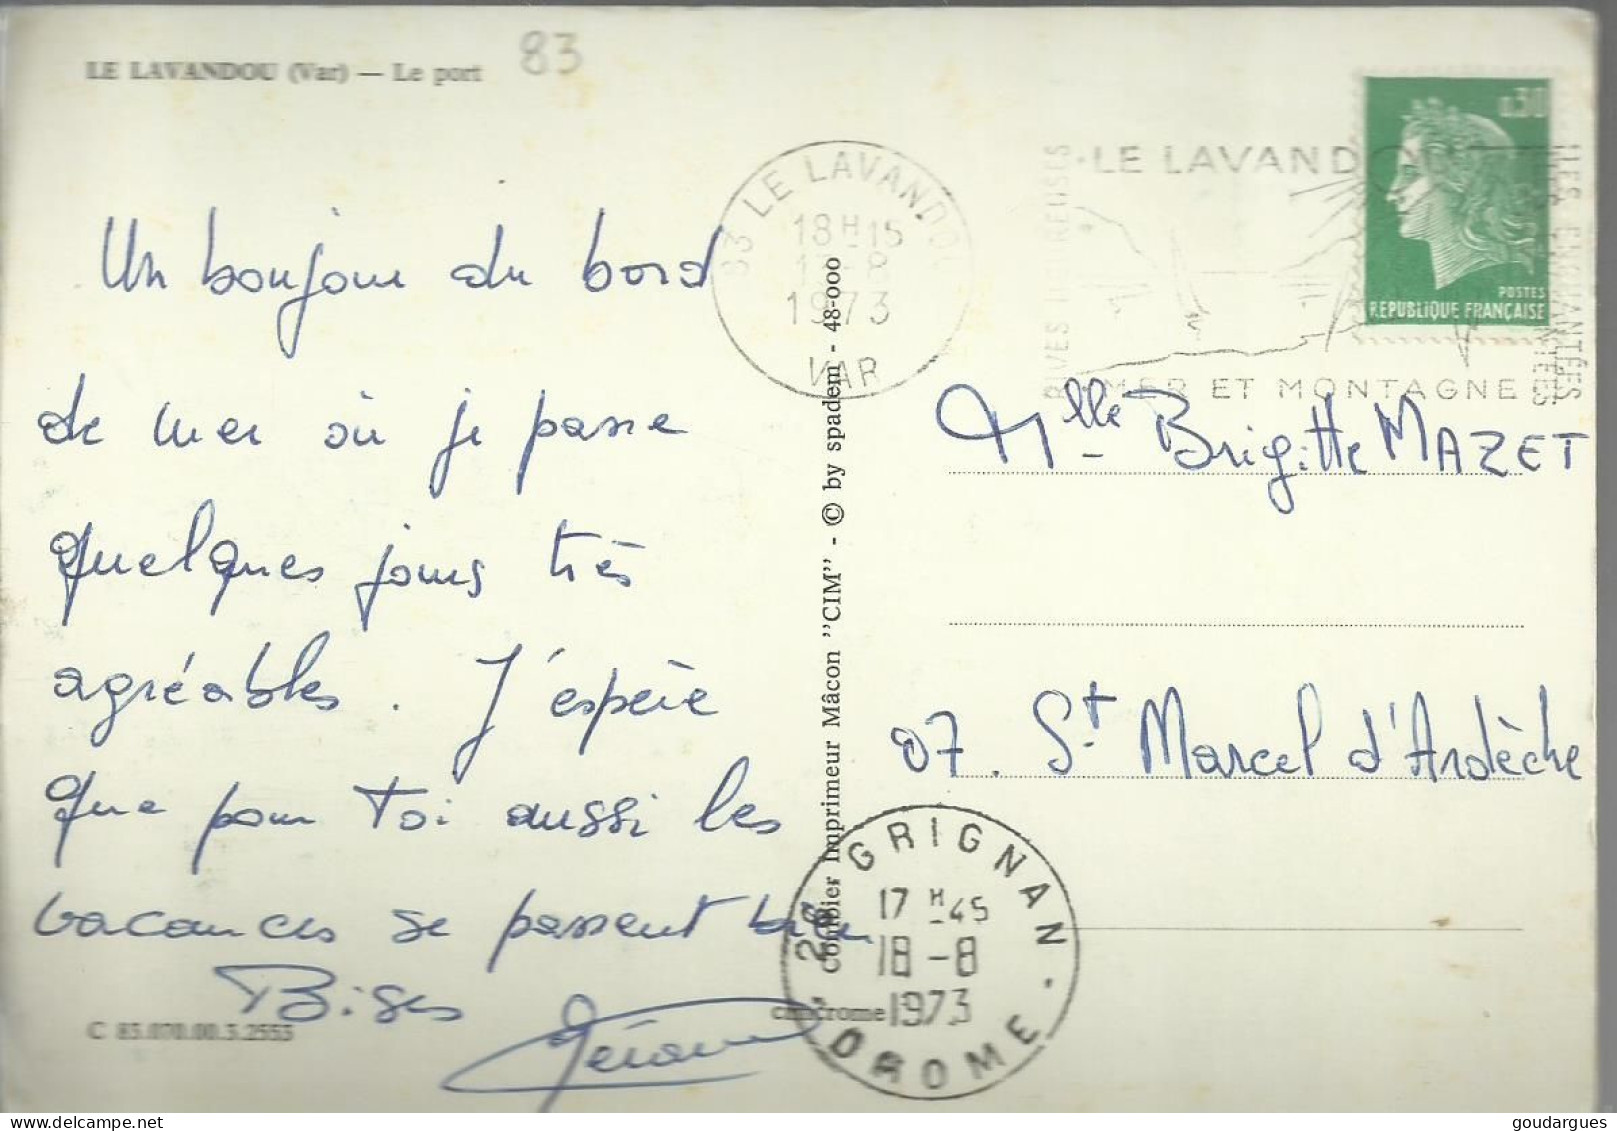 LE LAVANDOU (Var) — Le port
83
Un bonjour du bord
de mer où je passe
quelques jours très
agréables. J'espère
que pour toi aussi les
vacances se passent bien
Bises
C 83.070.00.3.2553
Combier Imprimeur Mâcon "CIM" - © by spadem - 48-000
cimcrome
83 LE LAVANDOU
18H-15
1973
VAR
·LE LAVANDOU
MER ET MONTAGNE
0,30
POSTES
REPUBLIQUE FRANÇAISE
Mlle Brigitte MAZET
07. St Marcel d'Ardèche
26 GRIGNAN
17H-45
18-8
1973
DROME
goudargues